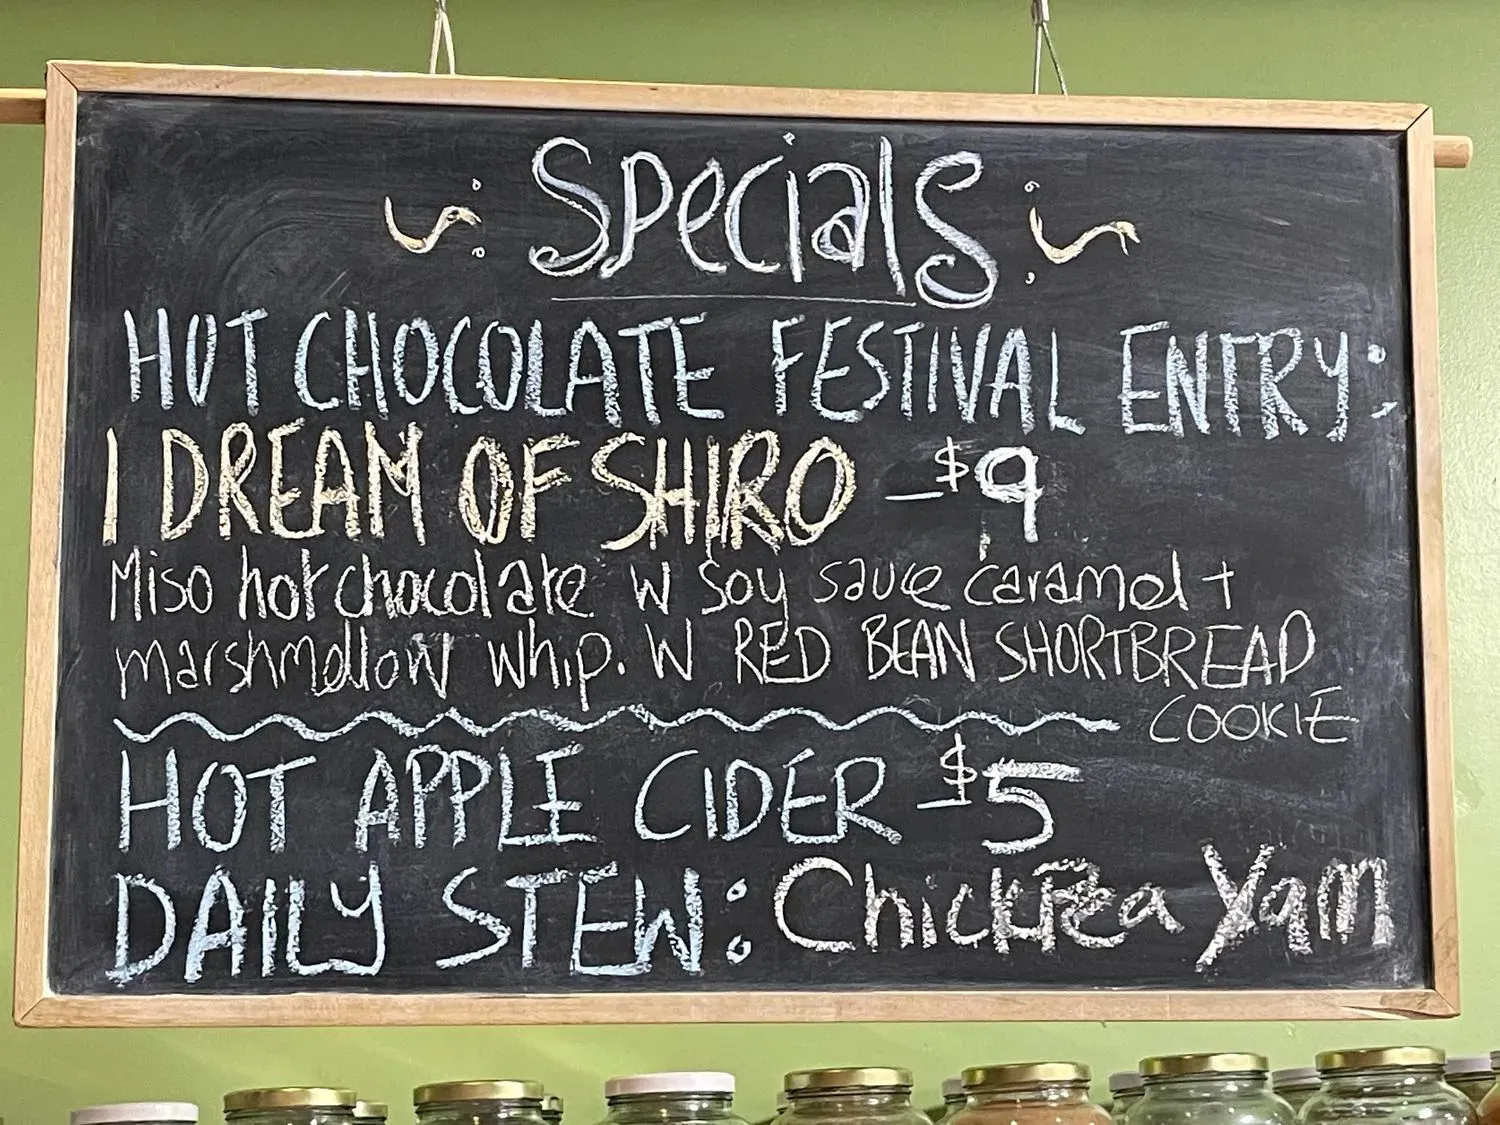 Specials
HOT CHOCOLATE FESTIVAL ENTRY:
I DREAM OF SHIRO - $9
Miso hot chocolate w soy sauce caramel +
marshmellow whip. W RED BEAN SHORTBREAD
COOKIE
HOT APPLE CIDER - $5
DAILY STEW: Chickpea Yam